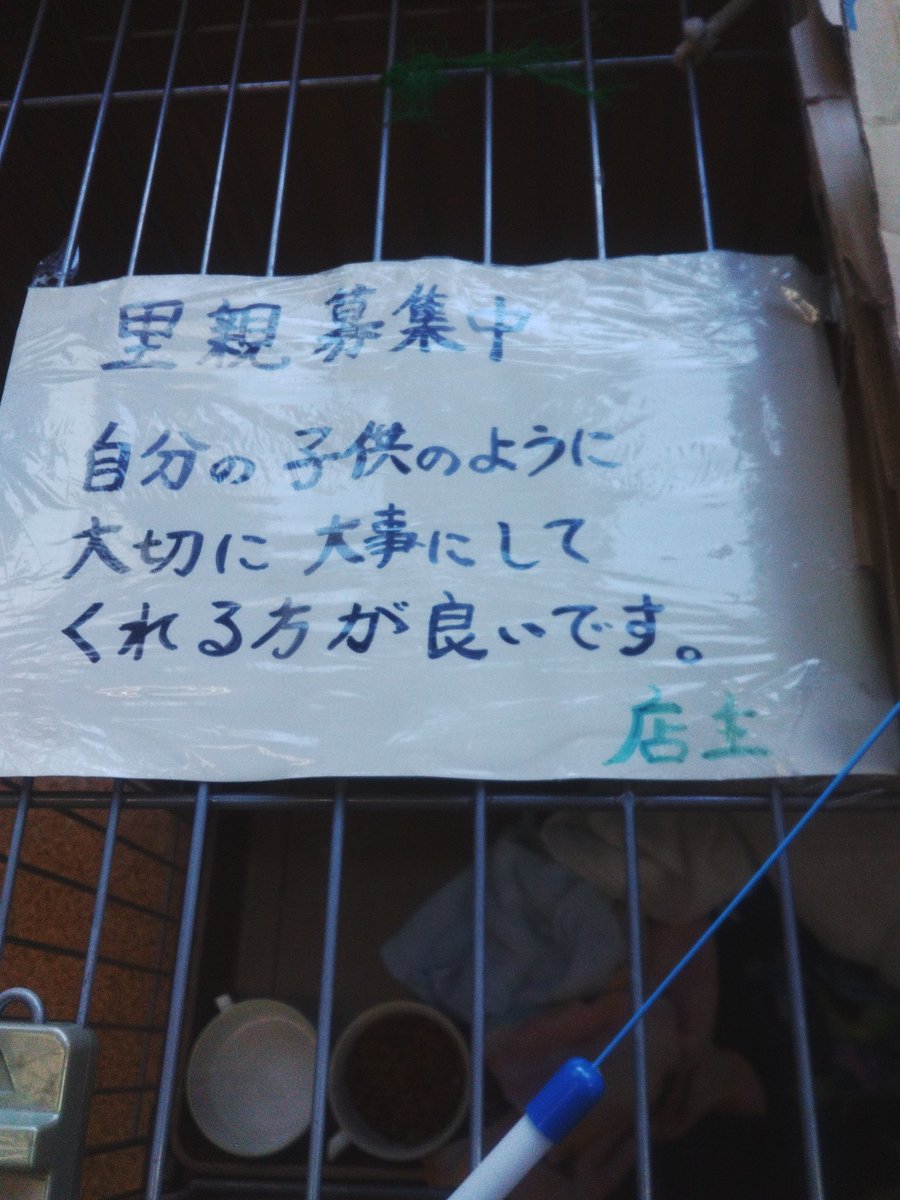 里親募集中
自分の子供のように
大切に大事にして
くれる方が良いです。
店主